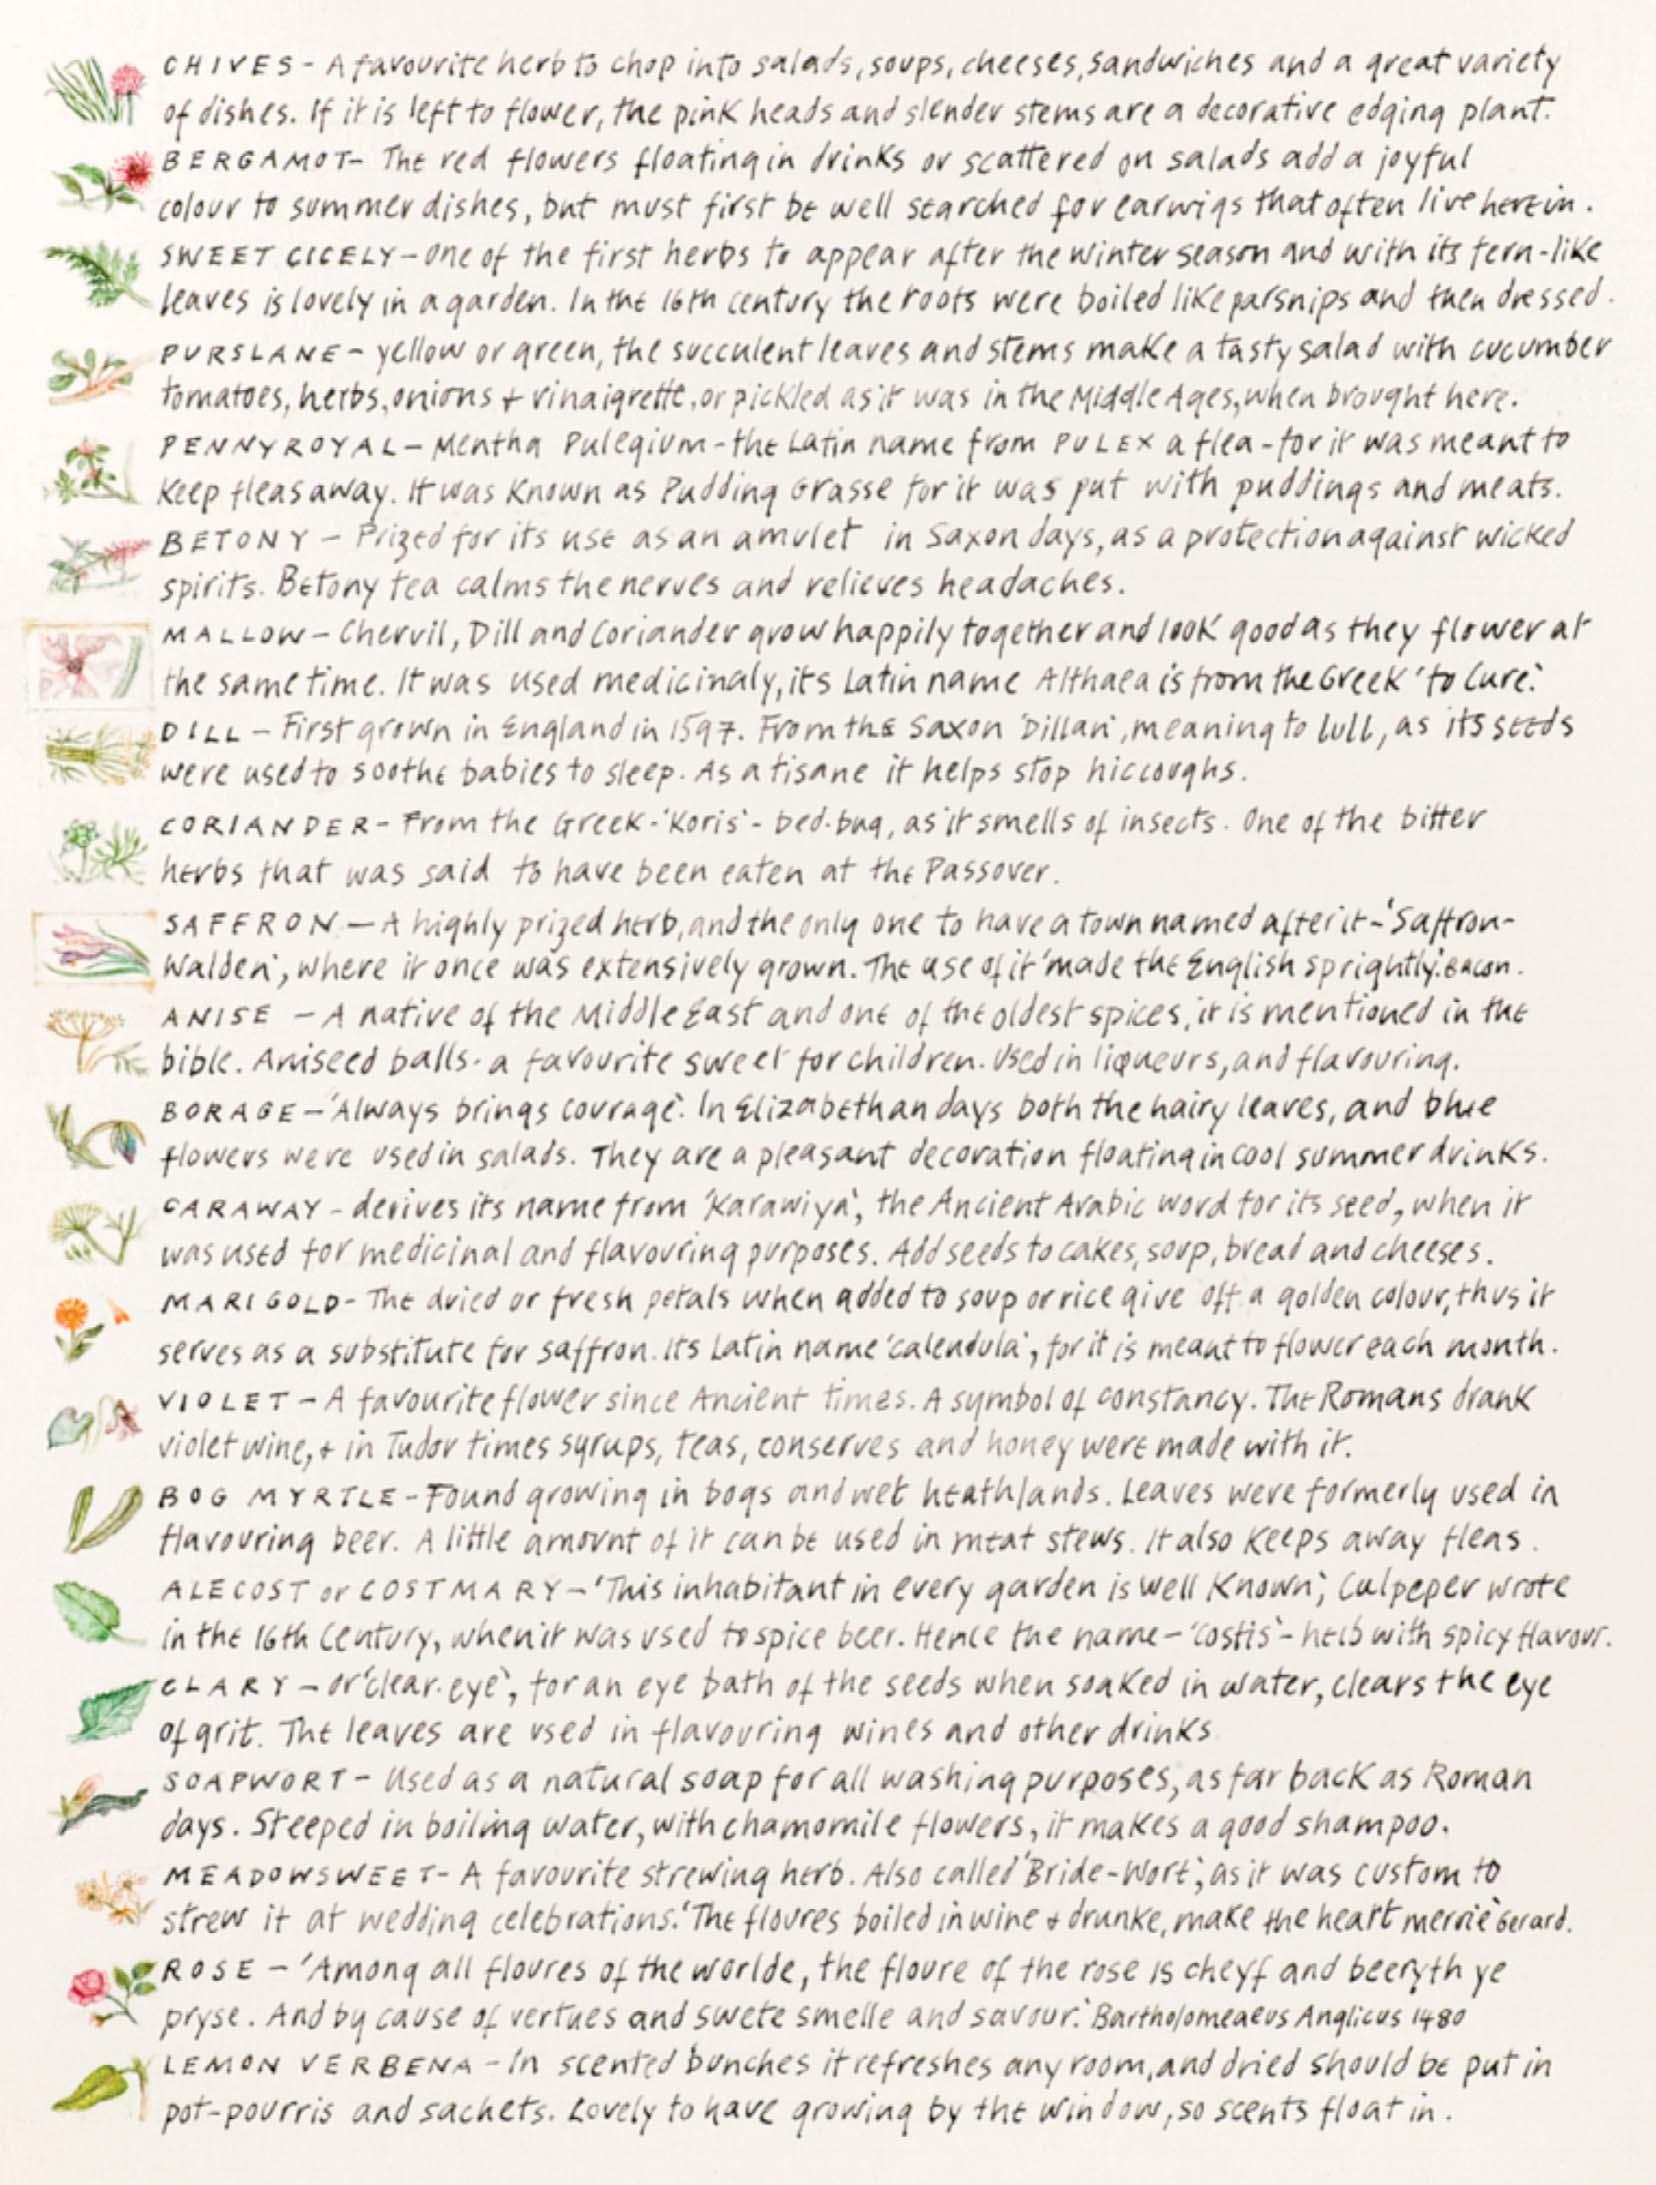 CHIVES - A favourite herb to chop into salads, soups, cheeses, sandwiches and a great variety
of dishes. If it is left to flower, the pink heads and slender stems are a decorative edging plant.
BERGAMOT - The red flowers floating in drinks or scattered on salads add a joyful
colour to summer dishes, but must first be well searched for earwigs that often live herein.
SWEET CICELY - One of the first herbs to appear after the winter season and with its fern-like
leaves is lovely in a garden. In the 16th century the roots were boiled like parsnips and then dressed.
PURSLANE - yellow or green, the succulent leaves and stems make a tasty salad with cucumber
tomatoes, herbs, onions + vinaigrette, or pickled as it was in the Middle Ages, when brought here.
PENNYROYAL - Mentha Pulegium - the Latin name from PULEX a flea - for it was meant to
keep fleas away. It was known as Pudding Grasse for it was put with puddings and meats.
BETONY - Prized for its use as an amulet in Saxon days, as a protection against wicked
spirits. Betony tea calms the nerves and relieves headaches.
MALLOW - Chervil, Dill and Coriander grow happily together and look good as they flower at
the same time. It was used medicinaly, its Latin name Althaea is from the Greek 'to Cure'.
DILL - First grown in England in 1597. From the Saxon 'Dillan', meaning to lull, as its seeds
were used to soothe babies to sleep. As a tisane it helps stop hiccoughs.
CORIANDER - From the Greek - 'Koris' - bed-bug, as it smells of insects. One of the bitter
herbs that was said to have been eaten at the Passover.
SAFFRON - A highly prized herb, and the only one to have a town named after it - 'Saffron-
Walden', where it once was extensively grown. The use of it 'made the English sprightly'. Bacon.
ANISE - A native of the Middle East and one of the oldest spices, it is mentioned in the
bible. Aniseed balls - a favourite sweet for children. Used in liqueurs, and flavouring.
BORAGE - 'Always brings courage'. In Elizabethan days both the hairy leaves, and blue
flowers were used in salads. They are a pleasant decoration floating in cool summer drinks.
CARAWAY - derives its name from 'Karawiya', the Ancient Arabic word for its seed, when it
was used for medicinal and flavouring purposes. Add seeds to cakes, soup, bread and cheeses.
MARIGOLD - The dried or fresh petals when added to soup or rice give off a golden colour, thus it
serves as a substitute for saffron. Its Latin name 'calendula', for it is meant to flower each month.
VIOLET - A favourite flower since Ancient times. A symbol of constancy. The Romans drank
violet wine, + in Tudor times syrups, teas, conserves and honey were made with it.
BOG MYRTLE - Found growing in bogs and wet heathlands. Leaves were formerly used in
flavouring beer. A little amount of it can be used in meat stews. It also keeps away fleas.
ALECOST or COSTMARY - 'This inhabitant in every garden is well known', Culpeper wrote
in the 16th Century, when it was used to spice beer. Hence the name - 'costis' - herb with spicy flavour.
CLARY - or 'clear-eye', for an eye bath of the seeds when soaked in water, clears the eye
of grit. The leaves are used in flavouring wines and other drinks
SOAPWORT - Used as a natural soap for all washing purposes, as far back as Roman
days. Steeped in boiling water, with chamomile flowers, it makes a good shampoo.
MEADOWSWEET - A favourite strewing herb. Also called 'Bride-Wort', as it was custom to
strew it at wedding celebrations. 'The floures boiled in wine + drunke, make the heart merrie' Gerard.
ROSE - 'Among all floures of the worlde, the floure of the rose is cheyf and beeryth ye
pryse. And by cause of vertues and swete smelle and savour.' Bartholomeaeus Anglicus 1480
LEMON VERBENA - In scented bunches it refreshes any room, and dried should be put in
pot-pourris and sachets. Lovely to have growing by the window, so scents float in.